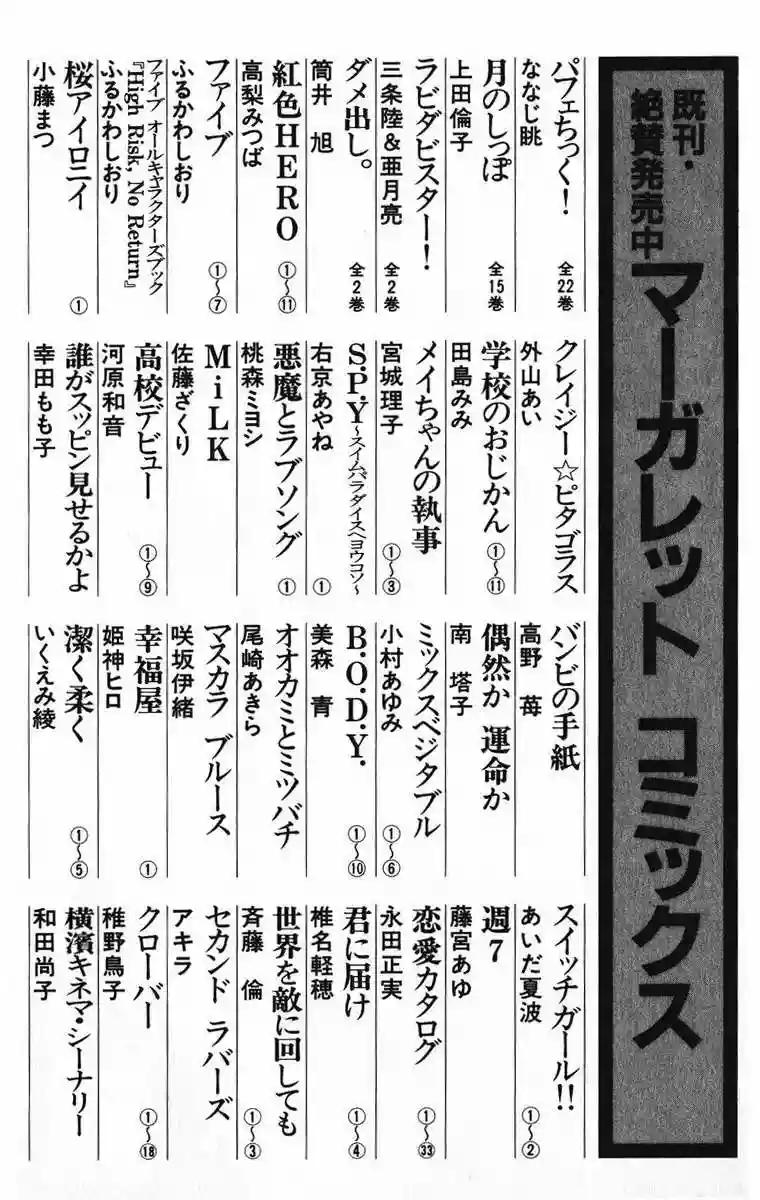 既刊・
絶賛発売中
マーガレット コミックス
パフェちっく！ 全22巻
ななじ眺
月のしっぽ 全15巻
上田倫子
ラビダビスター！ 全2巻
三条陸＆亜月亮
ダメ出し。 全2巻
筒井 旭
紅色HERO ①〜⑪
高梨みつば
ファイブ ①〜⑦
ふるかわしおり
ファイブ オールキャラクターズブック
『High Risk, No Return』
ふるかわしおり
桜アイロニイ ①
小藤まつ
クレイジー☆ピタゴラス
外山あい
学校のおじかん ①〜⑪
田島みみ
メイちゃんの執事 ①〜③
宮城理子
S.P.Y〜スイムパラダイスへヨウコソ〜 ①
右京あやね
悪魔とラブソング ①
桃森ミヨシ
MiLK
佐藤ざくり
高校デビュー ①〜⑨
河原和音
誰がスッピン見せるかよ
幸田もも子
バンビの手紙
高野 苺
偶然か 運命か
南 塔子
ミックスベジタブル ①〜⑥
小村あゆみ
B.O.D.Y. ①〜⑩
美森 青
オオカミとミツバチ
尾崎あきら
マスカラ ブルース
咲坂伊緒
幸福屋 ①
姫神ヒロ
潔く柔く ①〜⑤
いくえみ綾
スイッチガール!! ①〜②
あいだ夏波
週7
藤宮あゆ
恋愛カタログ ①〜㉝
永田正実
君に届け ①〜④
椎名軽穂
世界を敵に回しても ①〜③
斉藤 倫
セカンド ラバーズ
アキラ
クローバー ①〜⑱
稚野鳥子
横濱キネマ・シーナリー
和田尚子